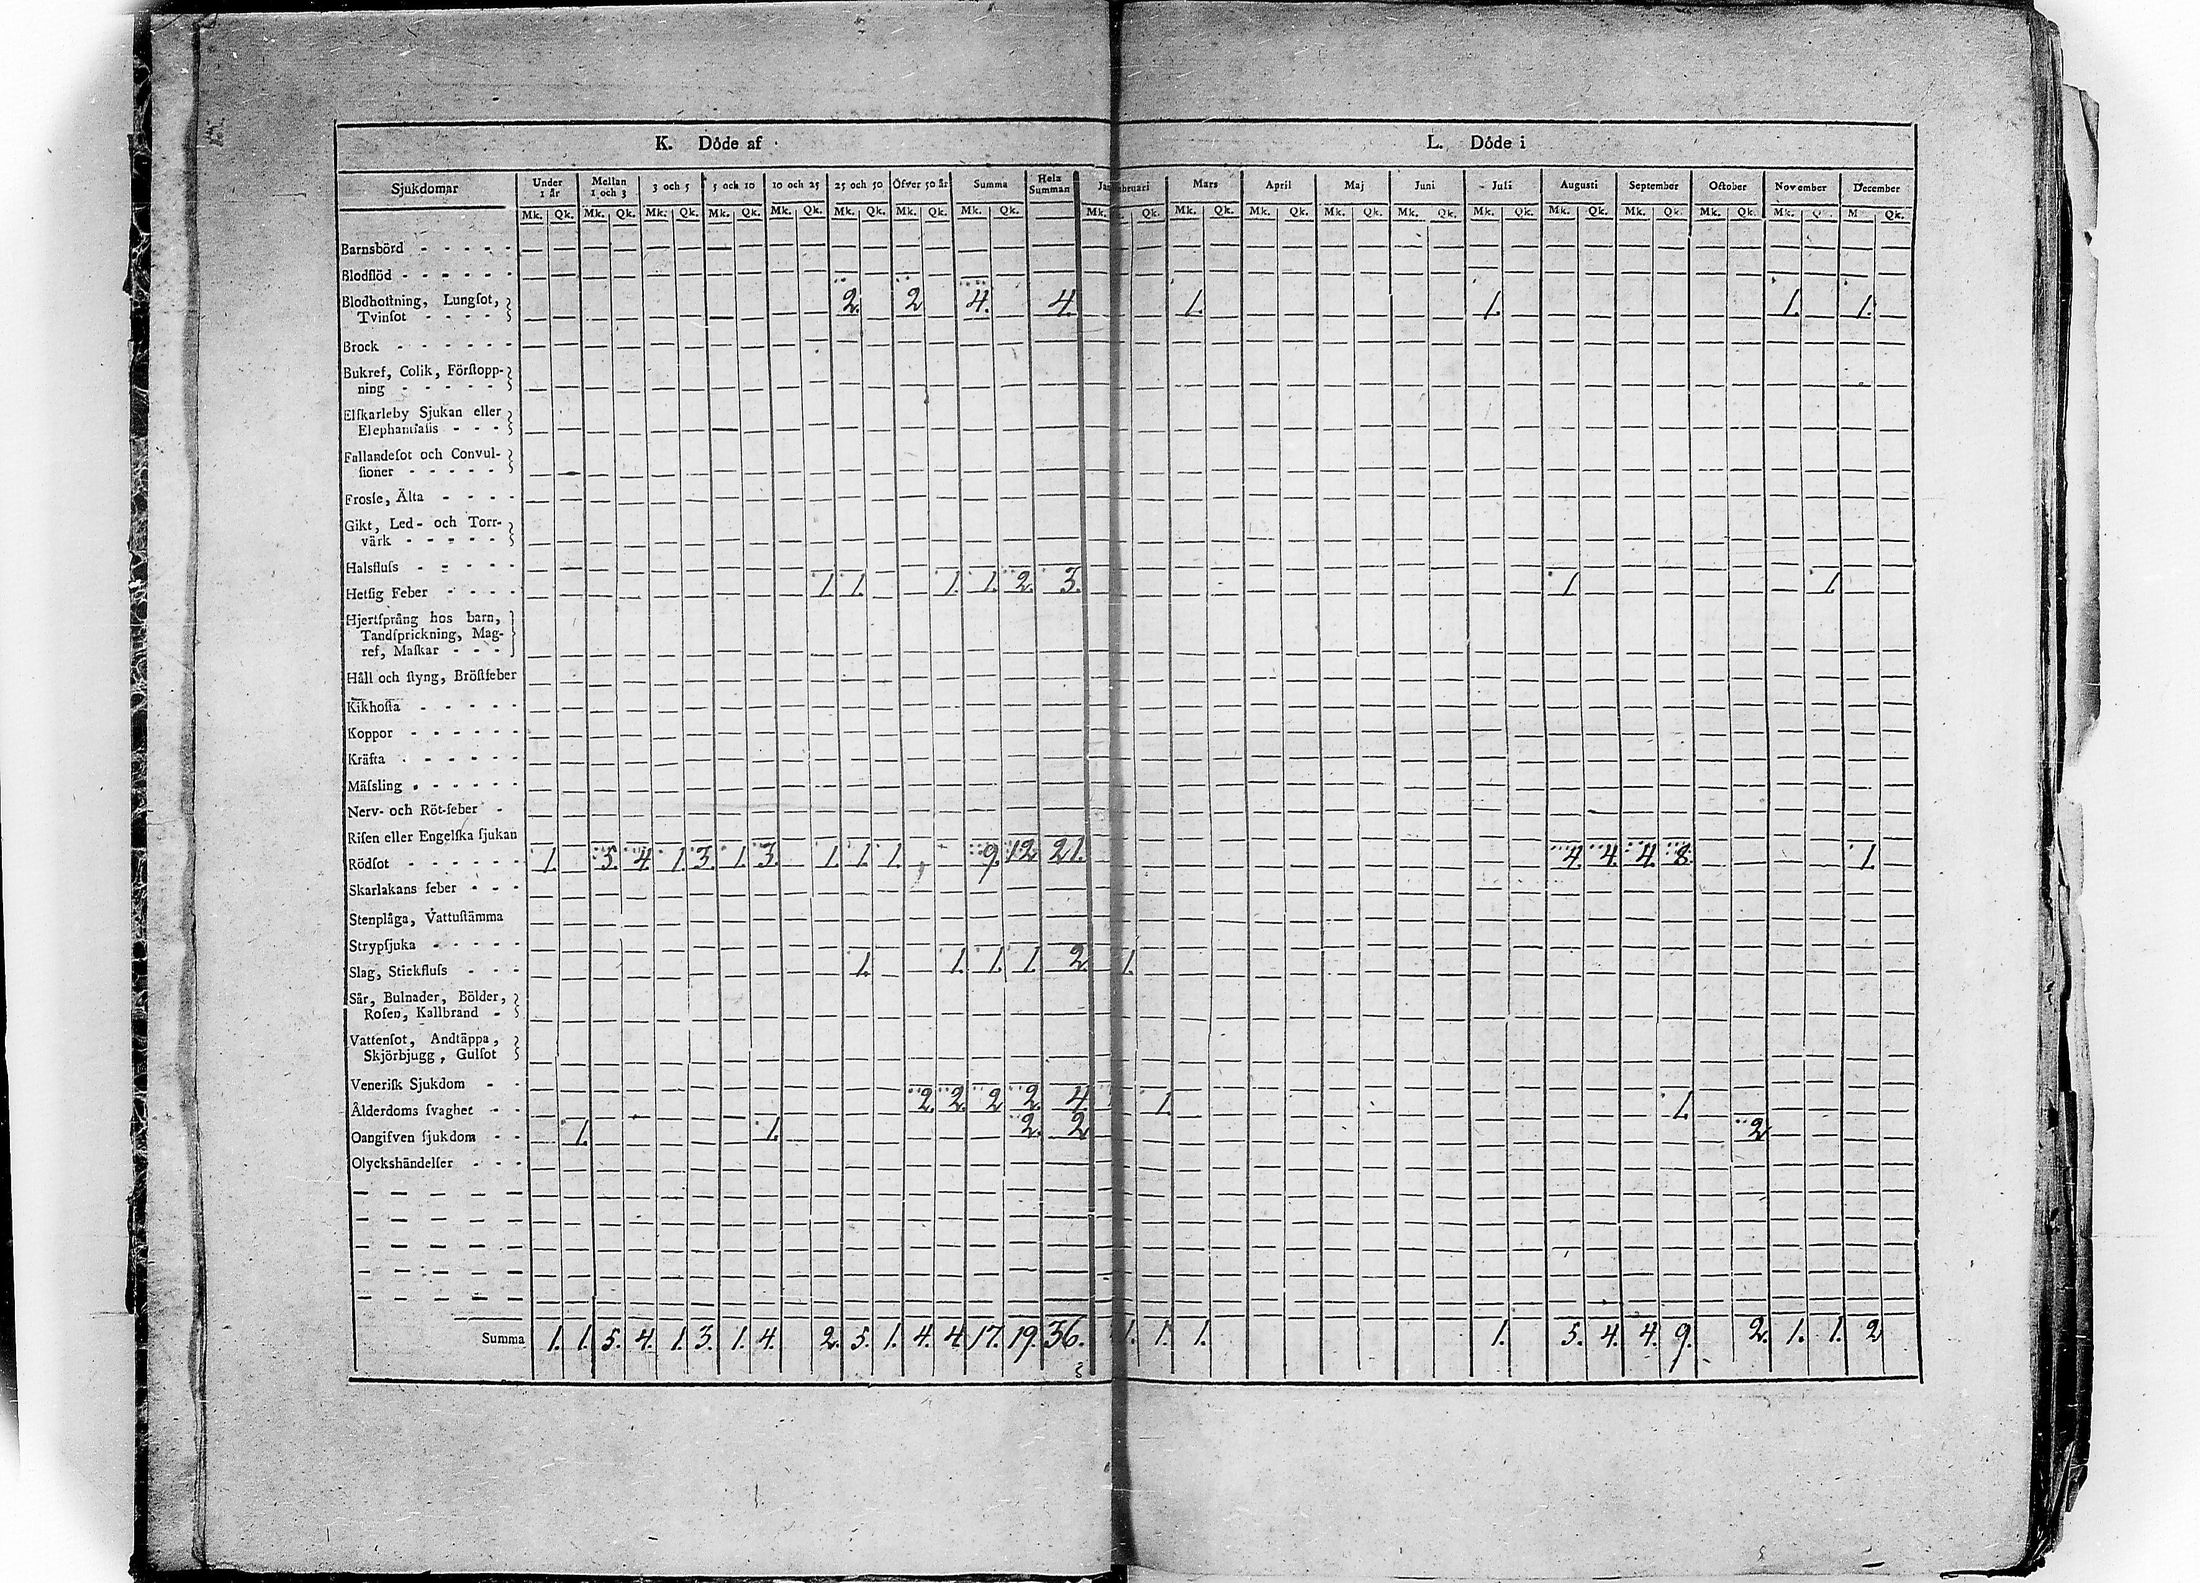 K. Döde af
L. Döde i
Sjukdomar Under 1 år Mellan 1 och 3 3 och 5 5 och 10 10 och 25 25 och 50 Öfver 50 år Summa Hela Summan
Februari Mars April Maj Juni Juli Augusti September October November December
Mk. Qk. Mk. Qk. Mk. Qk. Mk. Qk. Mk. Qk. Mk. Qk. Mk. Qk. Mk. Qk.
Mk. Qk. Mk. Qk. Mk. Qk. Mk. Qk. Mk. Qk. Mk. Qk. Mk. Qk. Mk. Qk. Mk. Qk. Mk. Qk. Qk.
Barnsbörd - - - - -
Blodflöd - - - - - -
Blodhoſtning, Lungſot,
Tvinſot - - - - 2. 2 4. 4. 1. 1. 1. 1.
Brock - - - - - -
Bukref, Colik, Förſtopp-
ning - - - - -
Elſkarleby Sjukan eller
Elephantiaſis - - -
Fallandeſot och Convul-
ſioner - - - - -
Frosſe, Älta - - - -
Gikt, Led- och Torr-
värk - - - - -
Halsfluſs - - - - -
Hetſig Feber - - - - 1. 1. 1. 1. 2. 3. 1. 1.
Hjertſprång hos barn,
Tandſprickning, Mag-
ref, Maſkar - - -
Håll och ſtyng, Bröſtfeber
Kikhoſta - - - - -
Koppor - - - - - -
Kräfta - - - - - -
Mäſsling - - - - - -
Nerv- och Röt-feber -
Riſen eller Engelſka ſjukan
Rödſot - - - - - - 1. 5. 4. 1. 3. 1. 3. 1. 1. 1. 9. 12 21. 4. 4. 4. 8. 1.
Skarlakans feber - - -
Stenplåga, Vattuſtämma
Strypſjuka - - - - -
Slag, Stickfluſs - - - 1. 1. 1. 1. 2. 1.
Sår, Bulnader, Bölder,
Roſen, Kallbrand -
Vattenſot, Andtäppa,
Skjörbjugg, Gulſot
Veneriſk Sjukdom - -
Ålderdoms ſvaghet - - 2. 2. 2 2. 4. 1. 1.
Oangifven ſjukdom - - 1. 1. 2. 2 2
Olyckshändelſer - - -
Summa 1. 1. 5. 4. 1. 3. 1. 4. 2. 5. 1. 4. 4 17. 19. 36. 1. 1. 1. 1. 5. 4. 4. 9. 2. 1. 1. 2